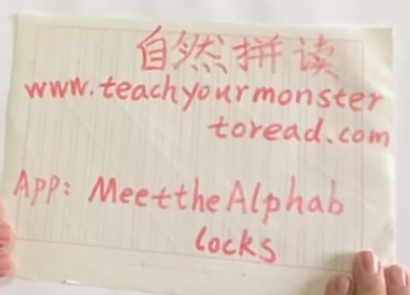 自然拼读
www.teachyourmonster
toread.com
App: MeettheAlphab
locks